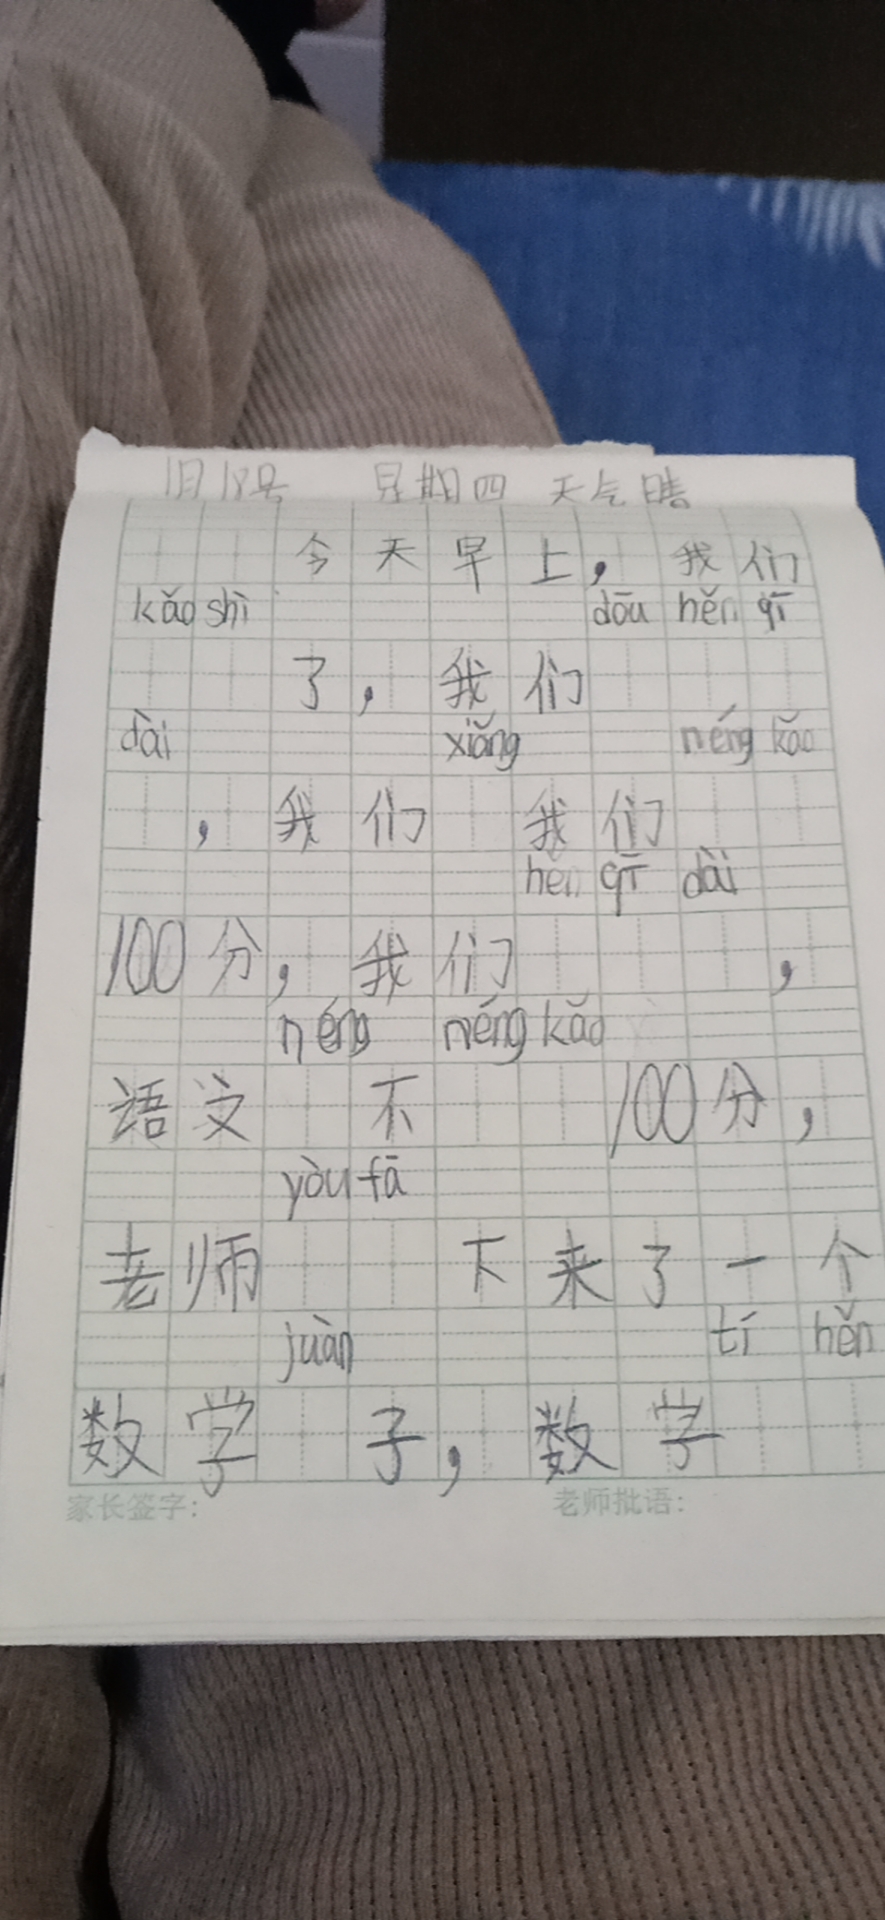 1月18号 星期四 天气晴
今天早上，我们
kǎo shì dōu hěn qī
了，我们
dài xiǎng néng kǎo
，我们 我们
hěn qī dài
100分，我们 ，
néng néng kǎo
语文 不 100分，
yòu fā
老师 下来了一个
juàn tí hěn
数学 子，数学
家长签字： 老师批语：